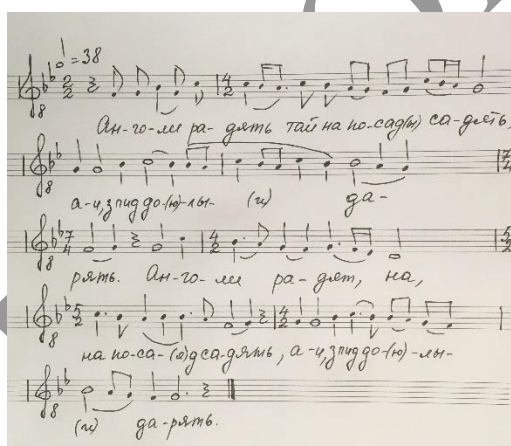 𝅗𝅥 = 38
Ан-го-ли ра- дять тай на по-сад(ы) са-деть,
а-и, з пид до-(ю)-лы- (ги) да-
рять. Ан-го-ли ра-дят, на,
на по-са-(а)д садять, а-и, з пид до-(ю)-лы-
(ги) да-рять.